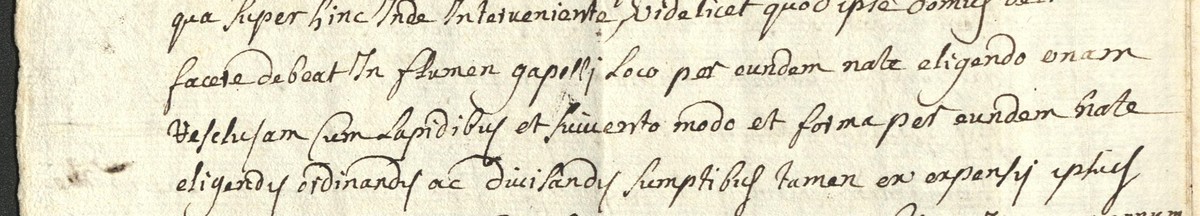 qua super hinc Inde Interveniente, videlicet quod ipse Domus
facere debeat In flumen gapelli Loco per eundem nate eligendo unam
resclusam Cum Lapidibus et modo et forma per eundem Nate
eligendis ordinandis ac divisandis sumptibus tamen ex expensis ipsius